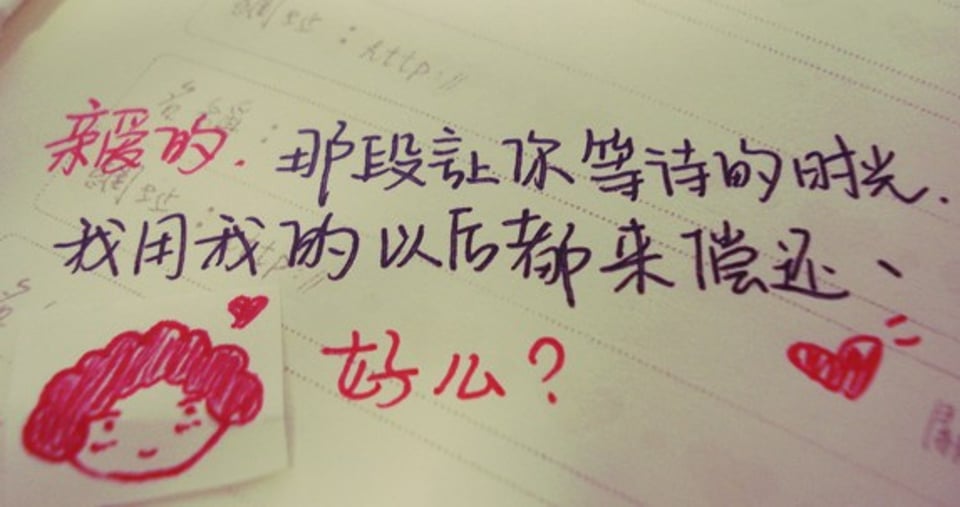 网址：http://
名称：
网址：
亲爱的.那段让你等待的时光.
我用我的以后都来偿还、
好么？